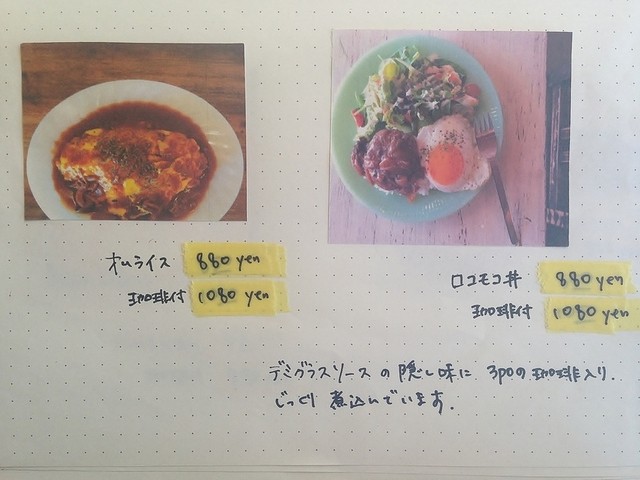 オムライス 880 yen
珈琲付 1080 yen
ロコモコ丼 880 yen
珈琲付 1080 yen
デミグラスソースの隠し味に 3poの珈琲入り.
じっくり 煮込んでいます.